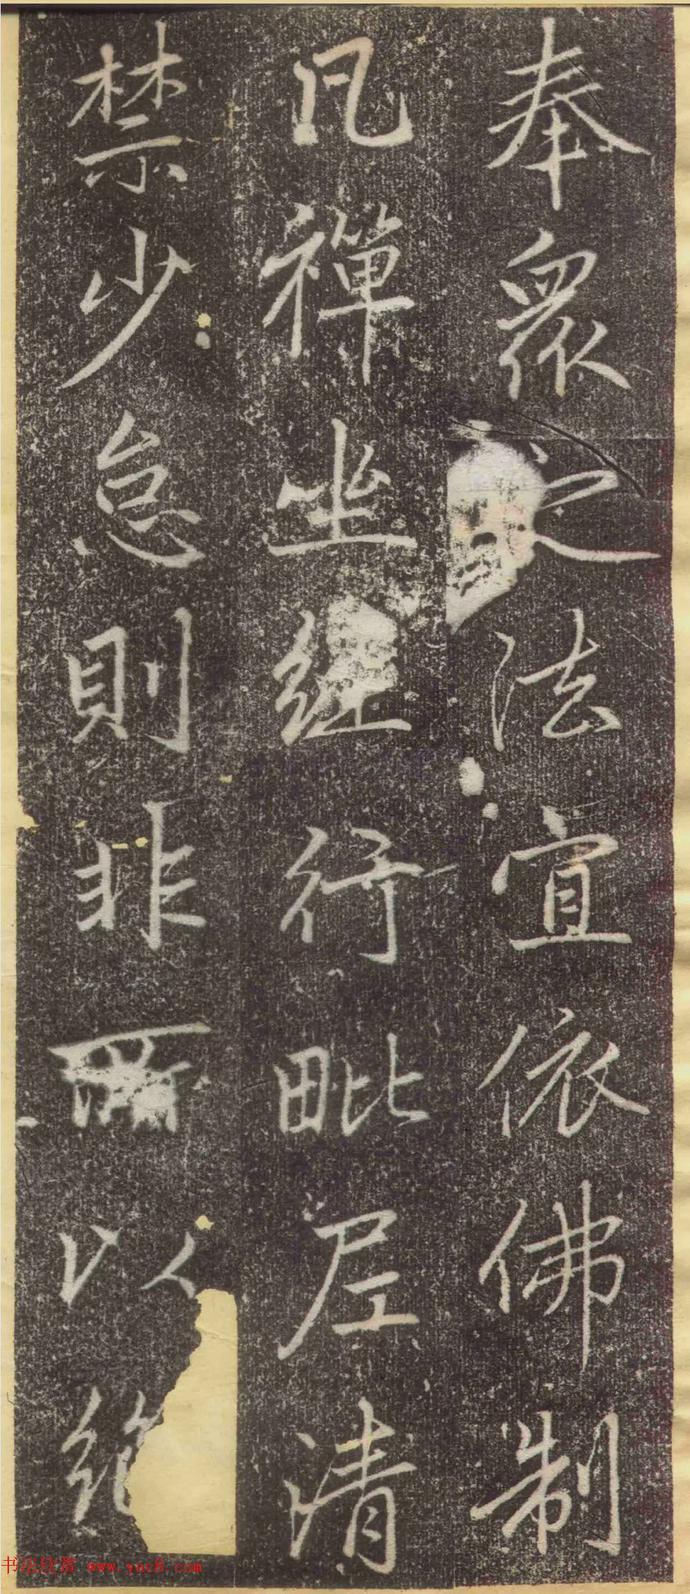 奉眾之法宜依佛制
凡禪坐經行毗尼清
禁少怠則非所以
书法欣赏 www.yac8.com